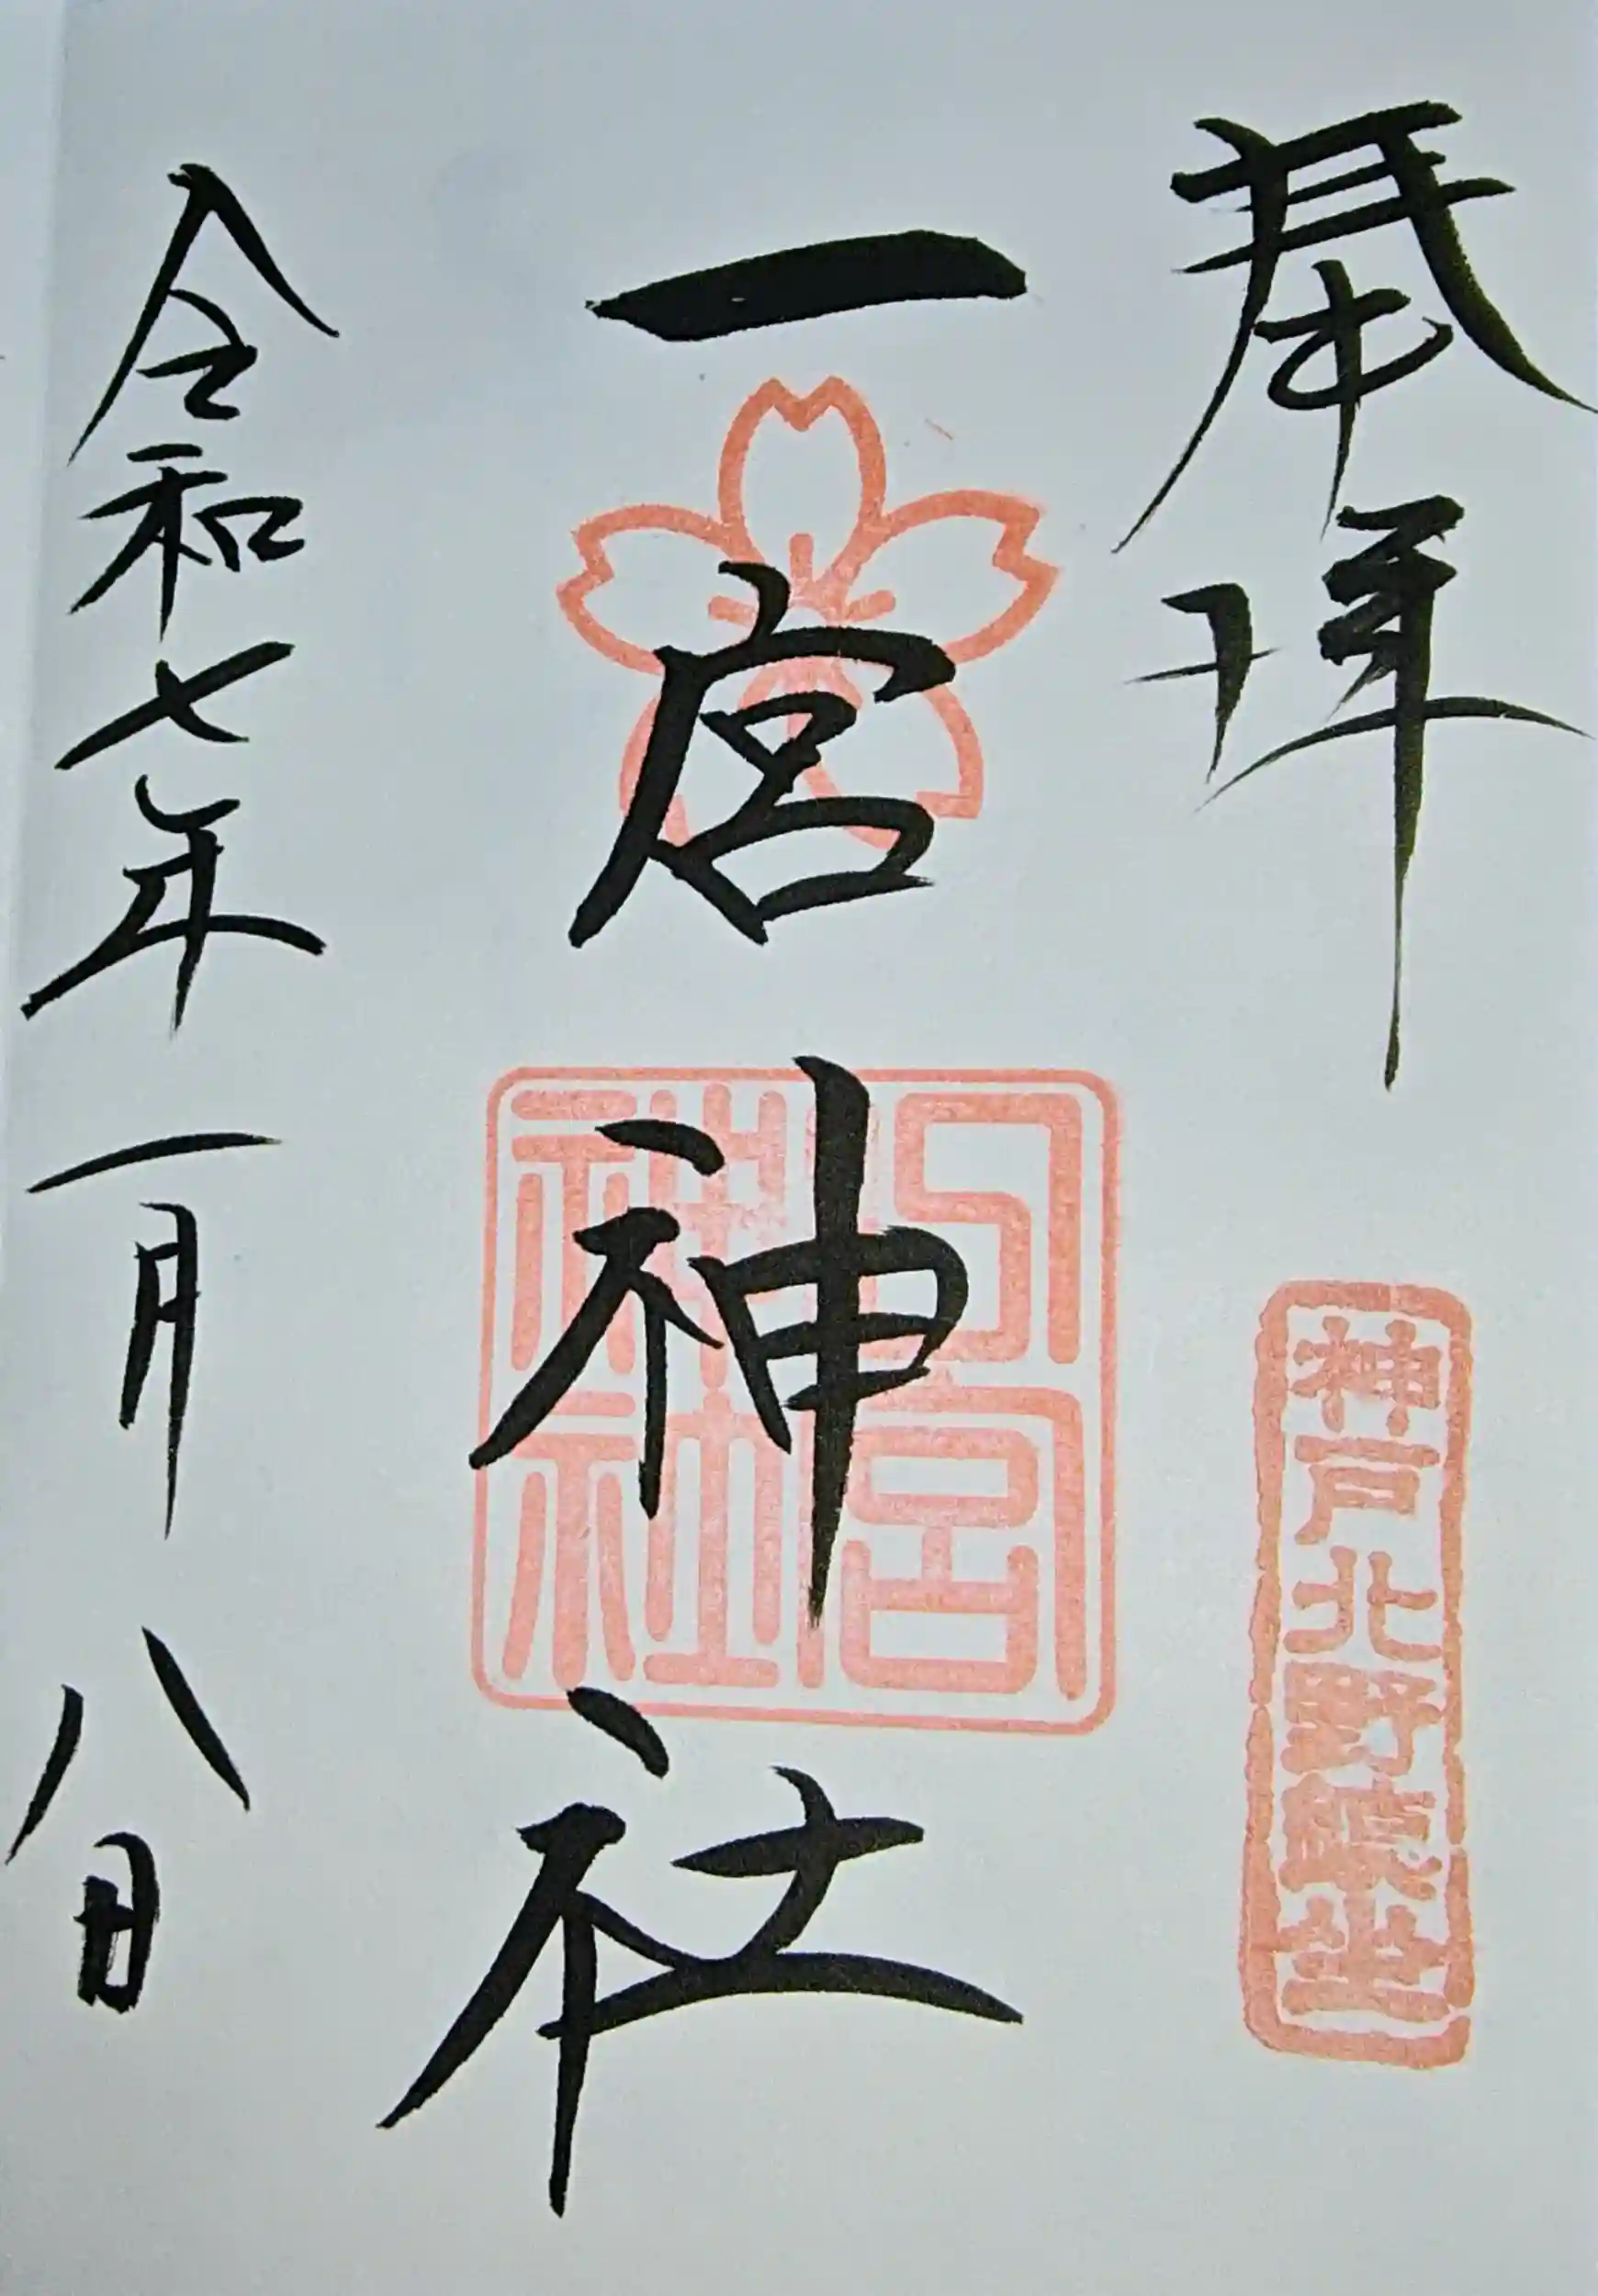 奉拝
神戸北野鎮坐
一宮神社
一宮神社
令和七年一月八日